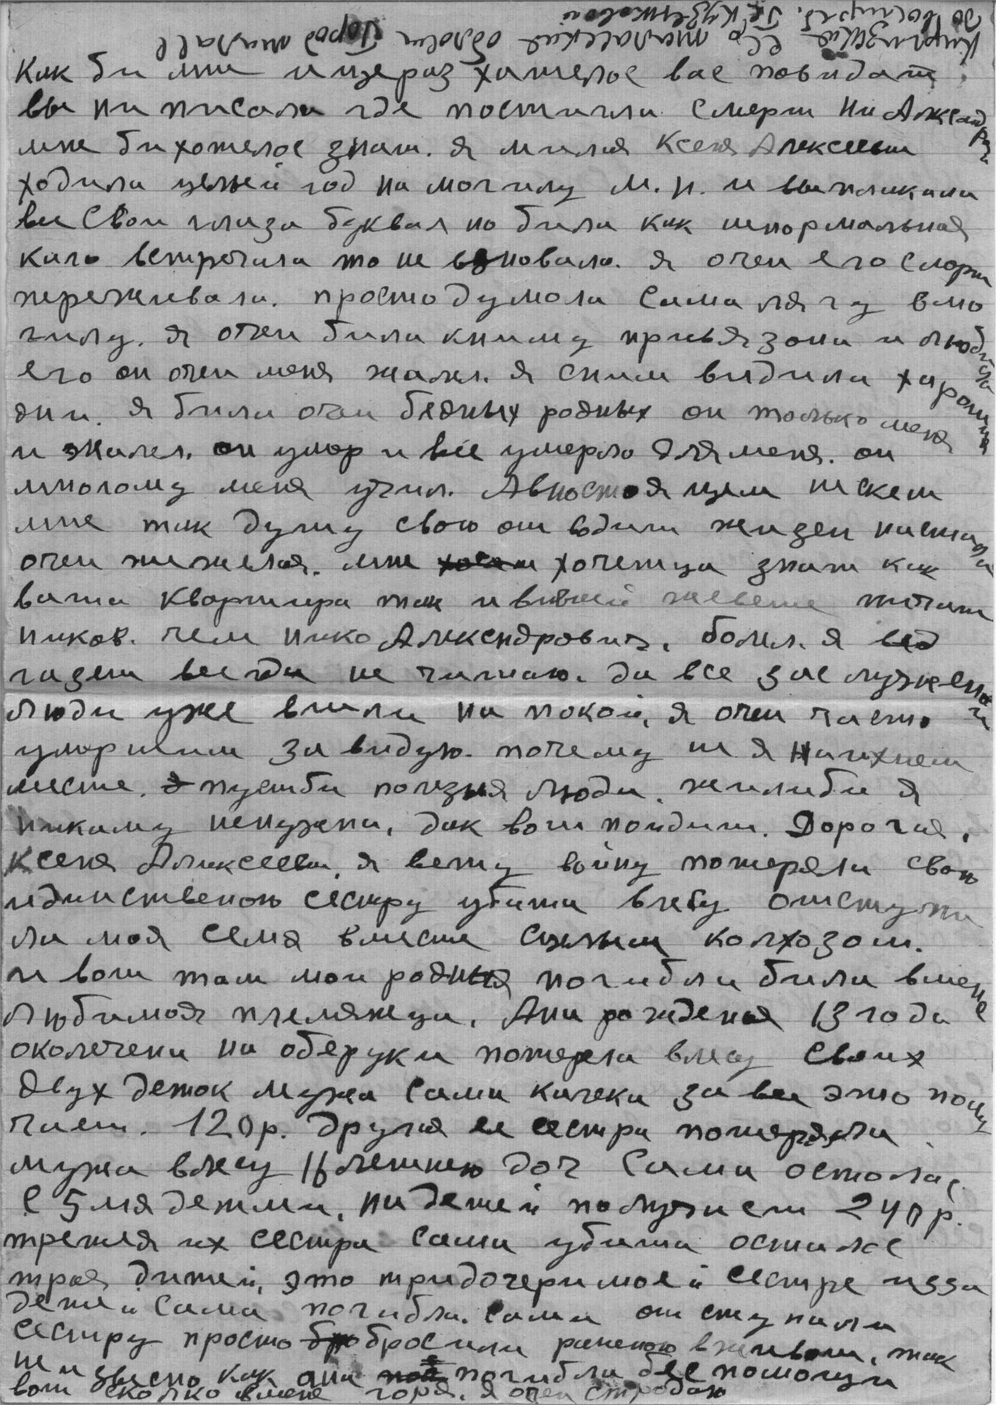 Киргизкие ССР талаские область город талас
до востреб. Г.К. Кузенковой
Как би мне ищераз хателос вас повидат.
ви ни писали где постигли смерт Ни Александрович
мне би хотелос знат. я милая Ксеня Алексеевн
ходила целей год на могилу М. Н. и выплакала
все свои глаза буквално била как шнормальная
каго встречала то не знавала. я очен его смерт
переживала. просто думала сама лягу вмо
гилу. я очен била книму привязона и любила
его он очен меня жалел. я сним видила харошия
дни. я била очен бедных родных он только меня
и жалел. он умор и все умерло для меня. он
многому меня учил. Авностоя щем нискем
мне так думу свою отводит жизен настала
очен тижелая. мне хочетца знат как
ваша квартира так и в
ников. чем Нико Александрович. болел. я
газети всегда не читаю. да все заслуженаи
люди уже вшли на покой, я очен часто
умаршим завидую. почему ни я наихнем
месте. пустьби полезния люди. жилиби я
никаму ненужена, дак воти поидит. Дорогая,
Ксеня Алексеевн, я вету войну потеряла свою
идинственою сестру убита влесу отступи
ла моя семя вместе сцелым колхозом.
и вот там мои родныя погибли била вменя
любимая племянеца, Аня рождения 13 года
околечена на оберуки потеряла влесу своих
двух деток мужа сама колека за все это полу
чает. 120 р. Другая ее сестра потеряла
мужа влесу 16 летнею доч сама осталас
с 5мя детми, на детей получает 240 р.
третея их сестра сама убита осталос
трое дитей, это тридочери моей сестре изза
детей сама погибла. сами отступали
сестру просто бросили раненою вживот, так
ни извесно как она погибла без помощи
вот сколко вменя горя. я очен страдаю